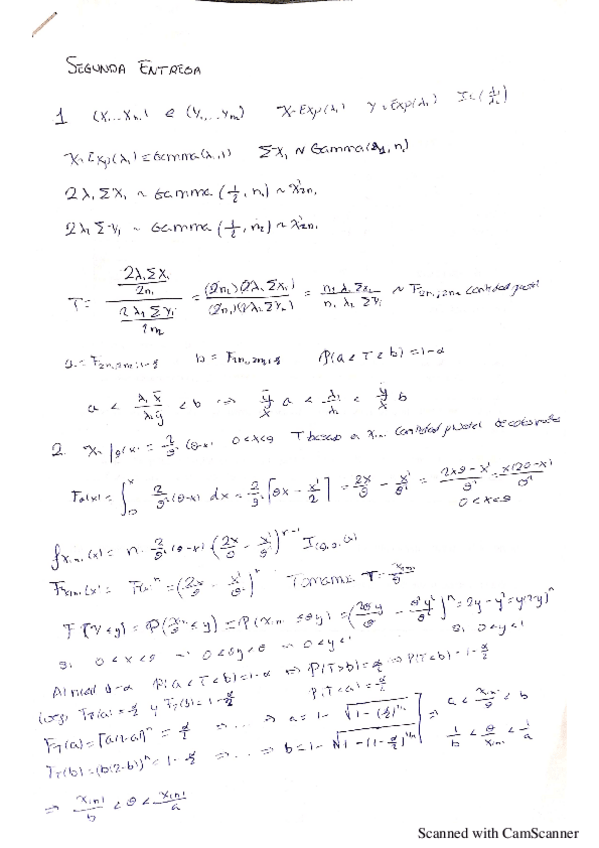 SEGUNDA ENTREGA
1 (X1...Xn1) e (Y1,...,Yn2) X~Exp(λ1) Y~Exp(λ2) IC(λ1/λ2)
X~Exp(λ1)≡Gamma(λ1,1) ΣXi ~ Gamma(λ1,n1)
2λ1ΣXi ~ Gamma(1/2, n1) ~ χ²2n1
2λ2ΣYi ~ Gamma(1/2, n2) ~ χ²2n2
T = (2λ1ΣXi/2n1)/(2λ2ΣYi/2n2) = (2n2)(2λ1ΣXi)/(2n1)(2λ2ΣYi) = n2 λ1 ΣXi/n1 λ2 ΣYi ~ F2n1,2n2 cantidad
P(a<T<b)=1-α
a < λ1x̄/λ2ȳ < b ⇒ ȳ/x̄ a < λ1/λ2 < ȳ/x̄ b
2. 0<x<θ T basado a X(n) cantidad
Fθ(x) = ∫0^x 2/θ²(θ-x) dx = 2/θ²[θx - x²/2] = 2x/θ - x²/θ² = 2xθ-x²/θ² = x(2θ-x)/θ²
0<x<θ
fX(n)(x) = n·2/θ²(θ-x)(2x/θ - x²/θ²)^n-1 I(0,θ)(x)
FX(n)(x) = F(x)^n = (2x/θ - x²/θ²)^n Tomamos T = X(n)/θ
F(Y<y) = P(X(n)/θ<y) = P(X(n)≤θy) = (2θy/θ - θ²y²/θ²)^n = 2y-y² = y(2-y)^n
si 0<x<θ ⇒ 0<θy<θ ⇒ 0<y<1 si 0<y<1
Al nivel 1-α P(a<T<b)=1-α ⇒ P(T>b)=α/2 ⇒ P(T<b)=1-α/2
P(T<a)=α/2
FT(a)=α/2 y FT(b)=1-α/2
FT(a)=[a(2-a)]^n=α/2 ⇒ ... ⇒ a=1-√1-(α/2)^1/n ⇒ a<X(n)/θ<b
FT(b)=(b(2-b))^n=1-α/2 ⇒ ... ⇒ b=1-√1-(1-α/2)^1/n 1/b<θ/X(n)<1/a
⇒ X(n)/b<θ<X(n)/a
Scanned with CamScanner